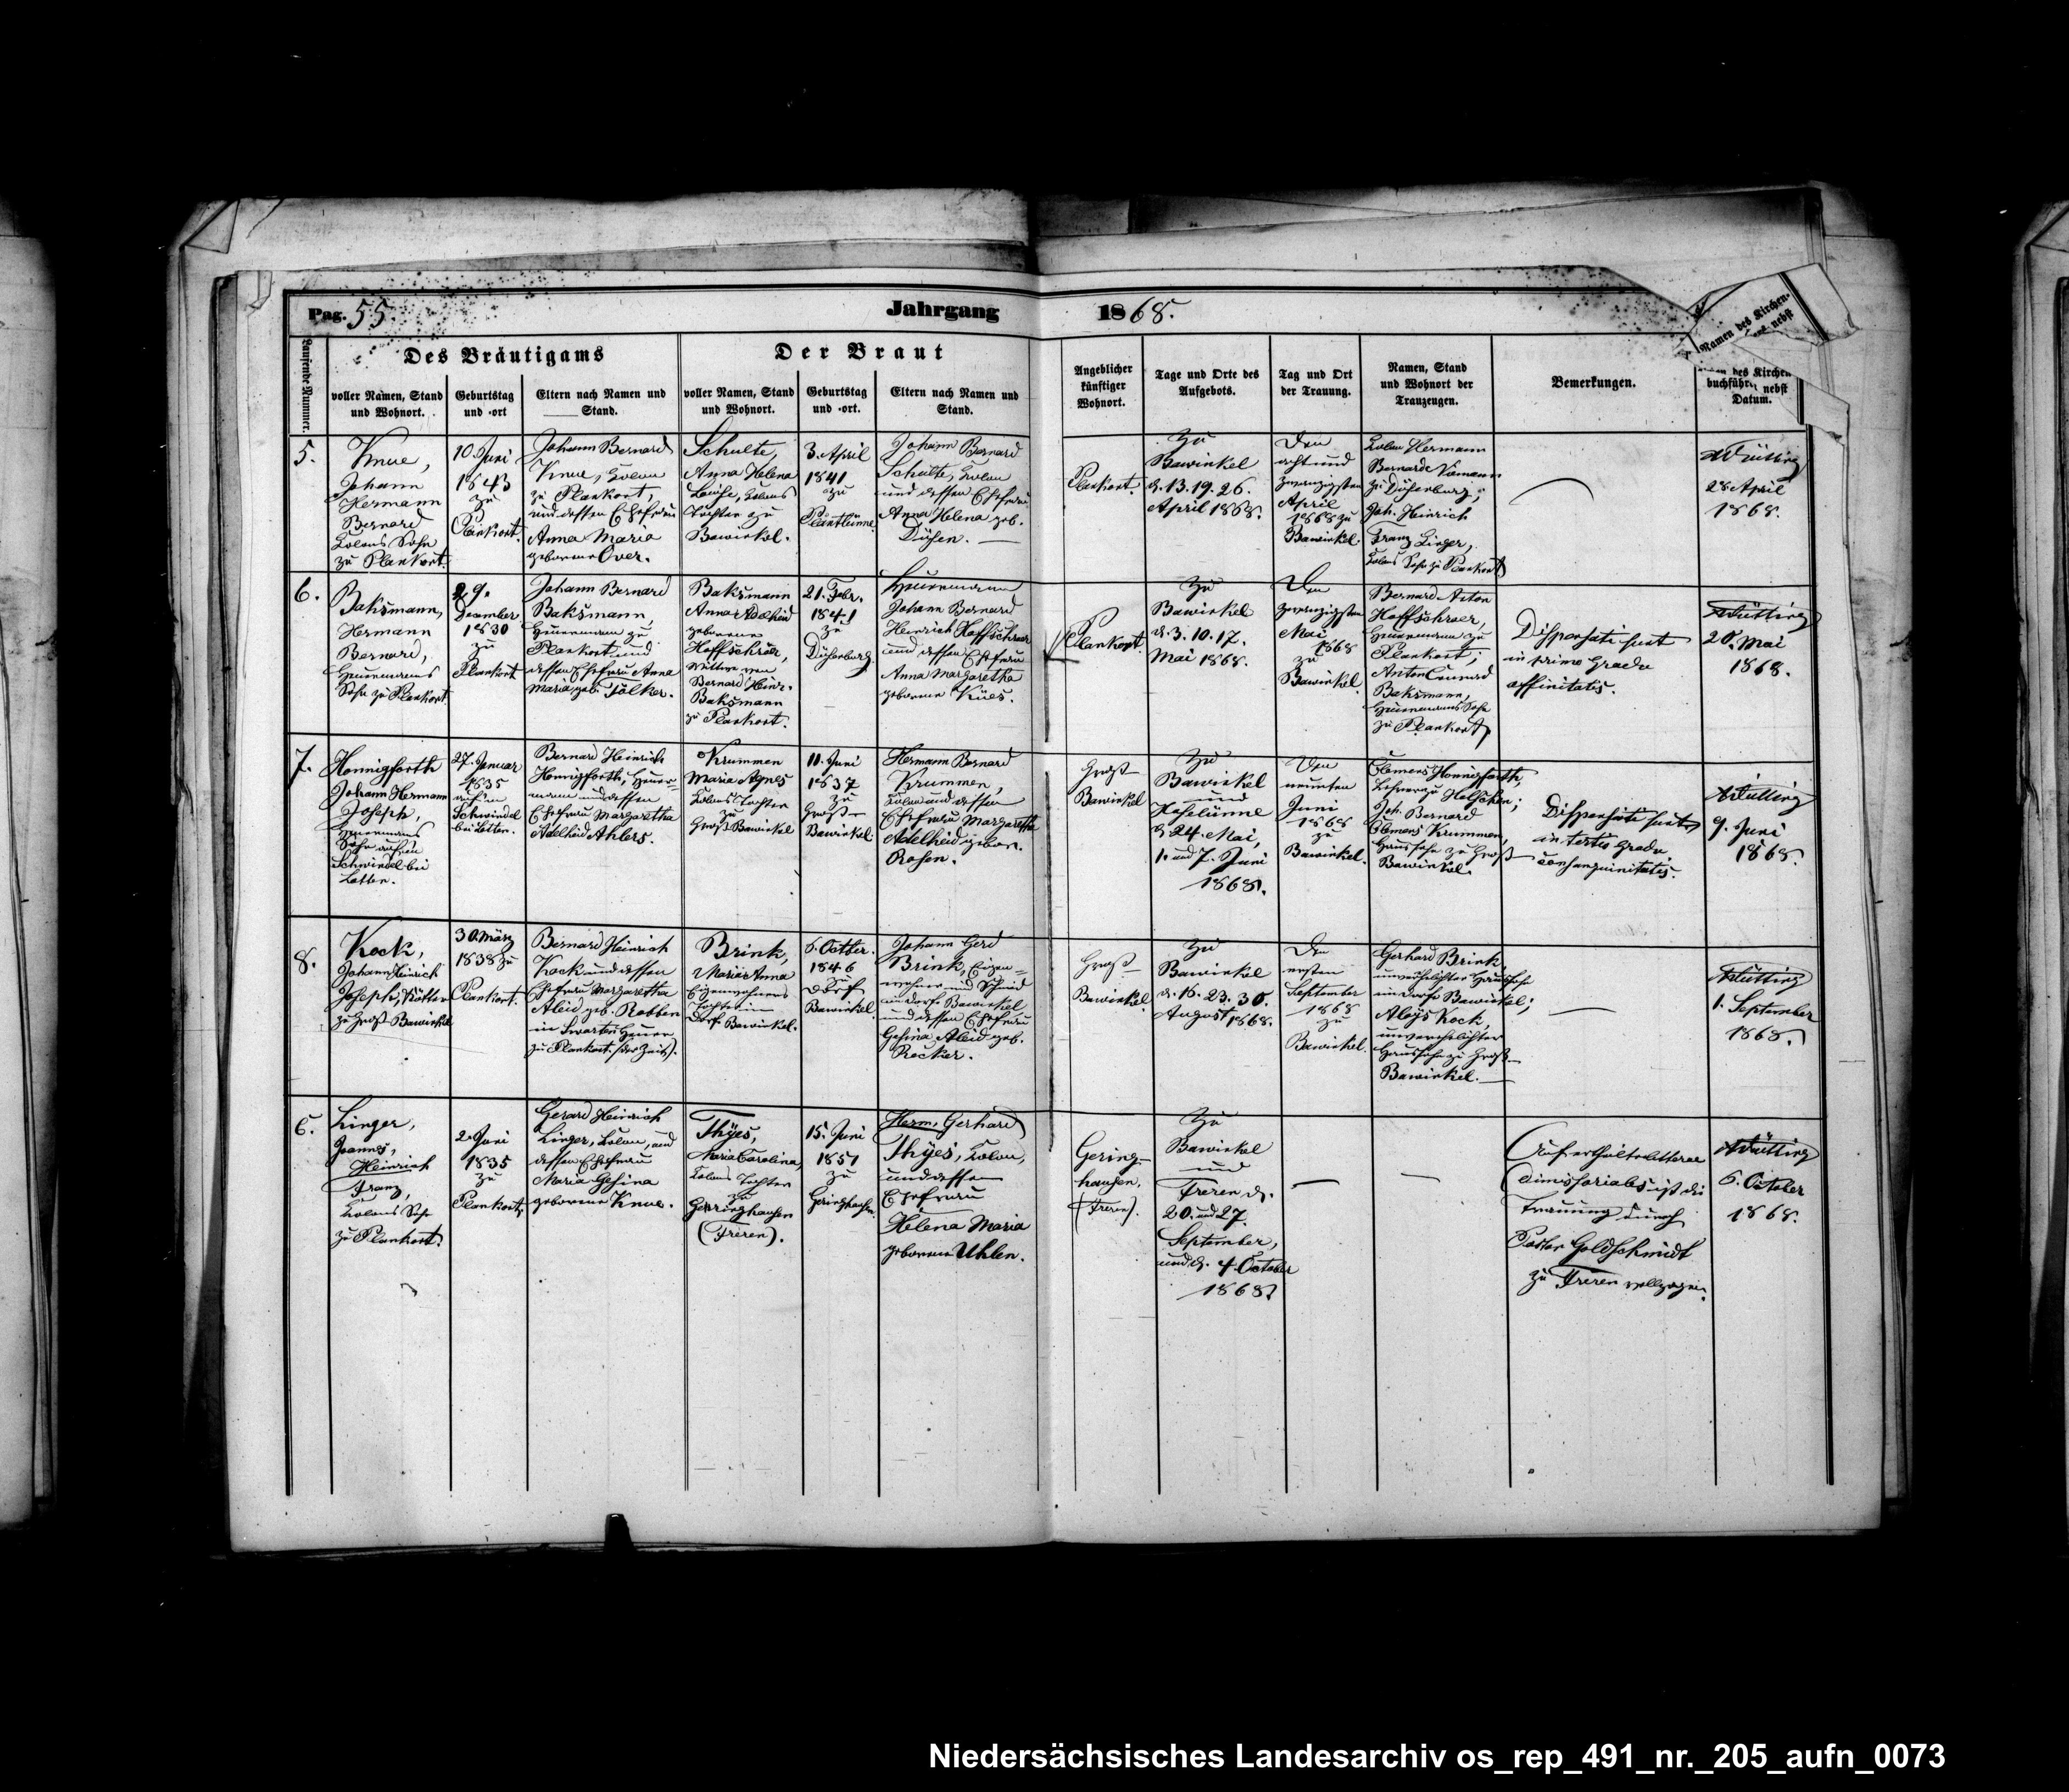 Pag. 55.
Jahrgang 1868.
Laufende Nummer.
Des Bräutigams
Der Braut
voller Namen, Stand
und Wohnort.
Geburtstag
und -ort
Eltern nach Namen und
Stand.
voller Namen, Stand
und Wohnort.
Geburtstag
und -ort.
Eltern nach Namen und
Stand.
Angeblicher
künftiger
Wohnort.
Tage und Orte des
Aufgebots.
Tag und Ort
der Trauung.
Namen, Stand
und Wohnort der
Trauzeugen.
Bemerkungen.
Namen des Kirchen-
nebst
des Kirchen
buchführ nebst
Datum.
5.
Knue,
Johann
Hermann
Bernard
Colons Sohn
zu Plankort.
10. Juni
1843
zu
Plankort.
Johann Bernard
Knue, Colon
zu Plankort,
und dessen Ehefrau
Anna Maria
geborene Over.
Schulte,
Anna Helena
Louise, Colons
Tochter zu
Bawinkel.
3. April
1841
zu
Plantlünne.
Johann Bernard
Schulte, Colon
und dessen Ehefrau
Anna Helena geb.
Düsen.
Plankort.
Zu
Bawinkel
d. 13. 19. 26.
April 1868.
Den
acht und
zwanzigsten
April
1868 zu
Bawinkel.
Colon Hermann
Bernard
zu Duisenburg;
Joh. Heinrich
Franz Linger,
Colons Sohn zu Plankort
28 April
1868.
6.
Baksmann,
Hermann
Bernard,
Heuermanns
Sohn zu Plankort.
29.
December
1830
zu
Plankort
Johann Bernard
Baksmann
Heuermann zu
Plankort und
dessen Ehefrau Anna
Maria geb. Fälker.
Baksmann
Anna Adelheid
geborene
Hoffschröer,
Wittwe von
Bernard Hinr.
Baksmann
zu Plankort.
21. Febr.
1841
zu
Heuermann
Johann Bernard
Heinrich Hoffschröer
und dessen Ehefrau
Anna Margaretha
geborene Kües.
Plankort.
Zu
Bawinkel
d. 3. 10. 17.
Mai 1868.
Den
zwanzigsten
Mai
1868
zu
Bawinkel.
Bernard Anton
Hoffschroer,
Heuermann zu
Plankort;
Anton Conrad
Baksmann,
Heuermanns Sohn
zu Plankort
Dispensati sunt
in primo gradu
affinitatis.
20. Mai
1868.
7.
Honnigforth
Johann Hermann
Joseph,
Heuermanns
Sohn auf'm
Schwindel bei
Lotten.
27. Januar
1835
auf'm
Schwindel
bei Lotten.
Bernard Heinrich
Honnigforth, Heuer-
mann und dessen
Ehefrau Margaretha
Adelheid Ahlers.
Krummen
Maria Agnes
Colons Tochter
zu
Groß Bawinkel
11. Juni
1837
zu
Groß-
Bawinkel.
Hermann Bernard
Krummen,
Colon und dessen
Ehefrau Margaretha
Adelheid gebor.
Rosen.
Groß-
Bawinkel
Zu
Bawinkel
und
Haselünne
d. 24. Mai,
1. und 7. Juni
1868.
Den
neunten
Juni
1868
zu
Bawinkel.
Clemens Honnigforth,
Lehrer zu Helschen;
Joh. Bernard
Clemens Krummen,
Haussohn zu Groß-
Bawinkel.
Dispensati sunt
in tertio gradu
consanguinitatis.
9. Juni
1868.
8.
Kock,
Johann Heinrich
Joseph, Kötter
zu Groß-Bawinkel
30. März
1838 zu
Plankort.
Bernard Heinrich
Kock und dessen
Ehefrau Margaretha
Aleid geb. Robben
in Heuer
zu Plankort (der Zeit).
Brink,
Maria Anna
Eigenwohners
Tochter im
Dorf Bawinkel.
6. Octber.
1846
zu
Dorf
Bawinkel
Johann Gerd
Brink, Eigen-
wohner und Schmied
im Dorfe Bawinkel
und dessen Ehefrau
Gesina Aleid geb.
Recker.
Groß-
Bawinkel
Zu
Bawinkel
d. 16. 23. 30.
August 1868.
Den
ersten
September
1868
zu
Bawinkel.
Gerhard Brink,
unverehelichter Haussohn
im Dorfe Bawinkel;
Aloys Kock,
unverehelichter
Haussohn zu Groß-
Bawinkel.
1. September
1868.
6.
Linger,
Joannes,
Heinrich
Franz,
Colons Sohn
zu Plankort.
2. Juni
1835
zu
Plankort.
Gerard Heinrich
Linger, Colon, und
dessen Ehefrau
Maria Gesina
geborene Knue.
Thyes,
Maria Carolina,
Colons Tochter
zu
Geringhausen
(Freren).
15. Juni
1851
zu
Geringhausen.
Herm. Gerhard
Thyes, Colon,
und dessen
Ehefrau
Helena Maria
geborene Uhlen.
Gering-
hausen.
(Freren).
Zu
Bawinkel
und
Freren d.
20. und 27.
September,
und d. 4. October
1868.
Auf ertheilte litterae
dimissoriales ist die
Trauung durch
Pastor Goldschmidt
zu Freren vollzogen.
6. October
1868.
Niedersächsisches Landesarchiv os_rep_491_nr._205_aufn_0073